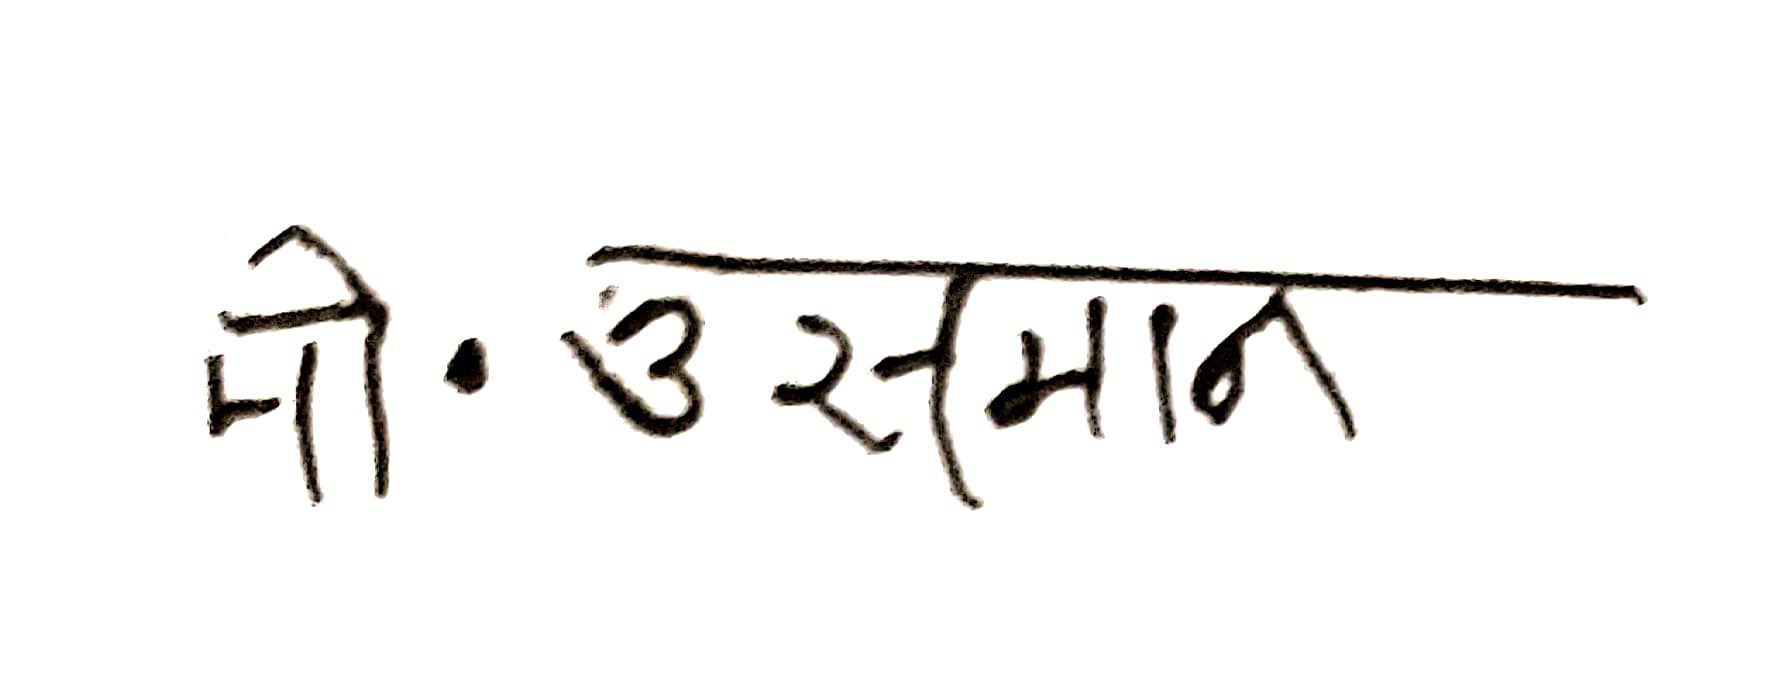 मो. उसमान